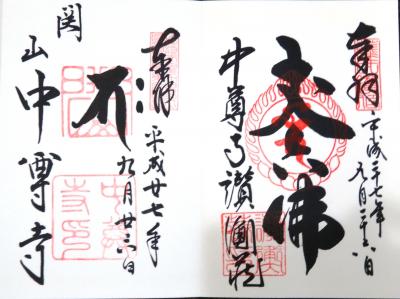 奉拝
平成二十七年
九月二十六日
大金佛
中尊寺讃衡蔵
奉拝
平成廿七年
九月廿六日
関山中尊寺